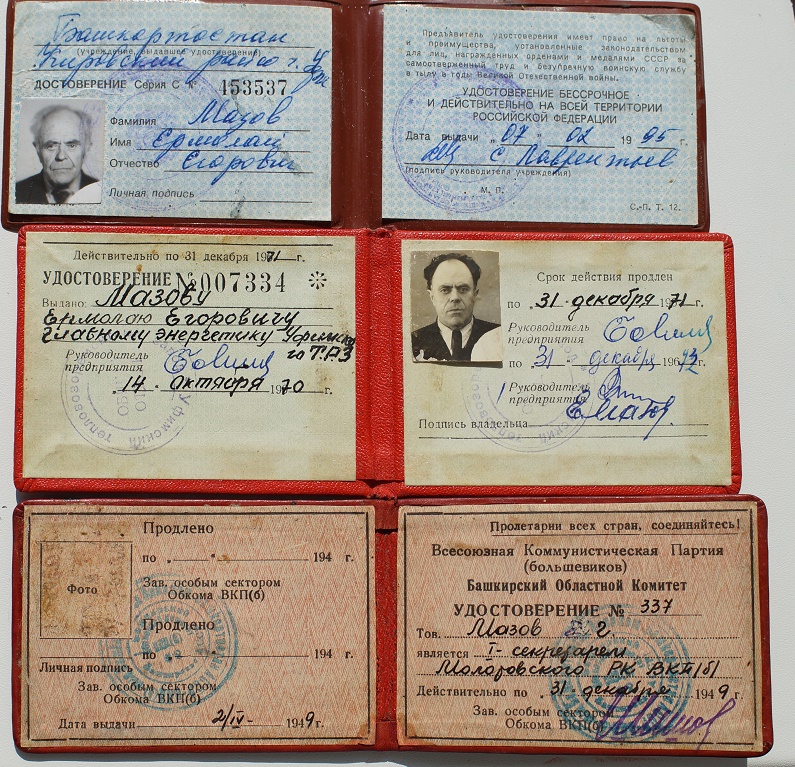 Башкортостан
(учреждение, выдавшее удостоверение)
Кировский район г. Уфа
ДОСТОВЕРЕНИЕ Серия С № 453537
Фамилия Мазов
Имя Ермолай
Отчество Егорович
Личная подпись
Предъявитель удостоверения имеет право на льготы
и преимущества, установленные законодательством
для лиц, награжденных орденами и медалями СССР за
самоотверженный труд и безупречную воинскую службу
в тылу в годы Великой Отечественной войны.
УДОСТОВЕРЕНИЕ БЕССРОЧНОЕ
И ДЕЙСТВИТЕЛЬНО НА ВСЕЙ ТЕРРИТОРИИ
РОССИЙСКОЙ ФЕДЕРАЦИИ
Дата выдачи „07“ 02 1995 г.
С Лаврентьев
(подпись руководителя учреждения)
М. П.
С.-П. Т. 12.
Действительно по 31 декабря 1971 г.
УДОСТОВЕРЕНИЕ № 007334 *
Выдано: Мазову
Ермолаю Егоровичу
главному энергетику Уфимско
го ТРЗ
Руководитель
предприятия
14 октября 1970 г.
Срок действия продлен
по 31 декабря 1971 г.
Руководитель
предприятия
по 31 декабря 196 г.
Руководитель
предприятия
Подпись владельца
Продлено
по 194 г.
Зав. особым сектором
Обкома ВКП(б)
Фото
Продлено
по 194 г.
Личная подпись
Зав. особым сектором
Обкома ВКП(б)
Дата выдачи 2/IV- 1949 г.
Пролетарии всех стран, соединяйтесь!
Всесоюзная Коммунистическая Партия
(большевиков)
Башкирский Областной Комитет
УДОСТОВЕРЕНИЕ № 337
Тов. Мазов Е. Г.
является I- секретарем
Молотовского РК ВКП(б)
Действительно по 31 декабря 1949 г.
Зав. особым сектором
Обкома ВКП(б)